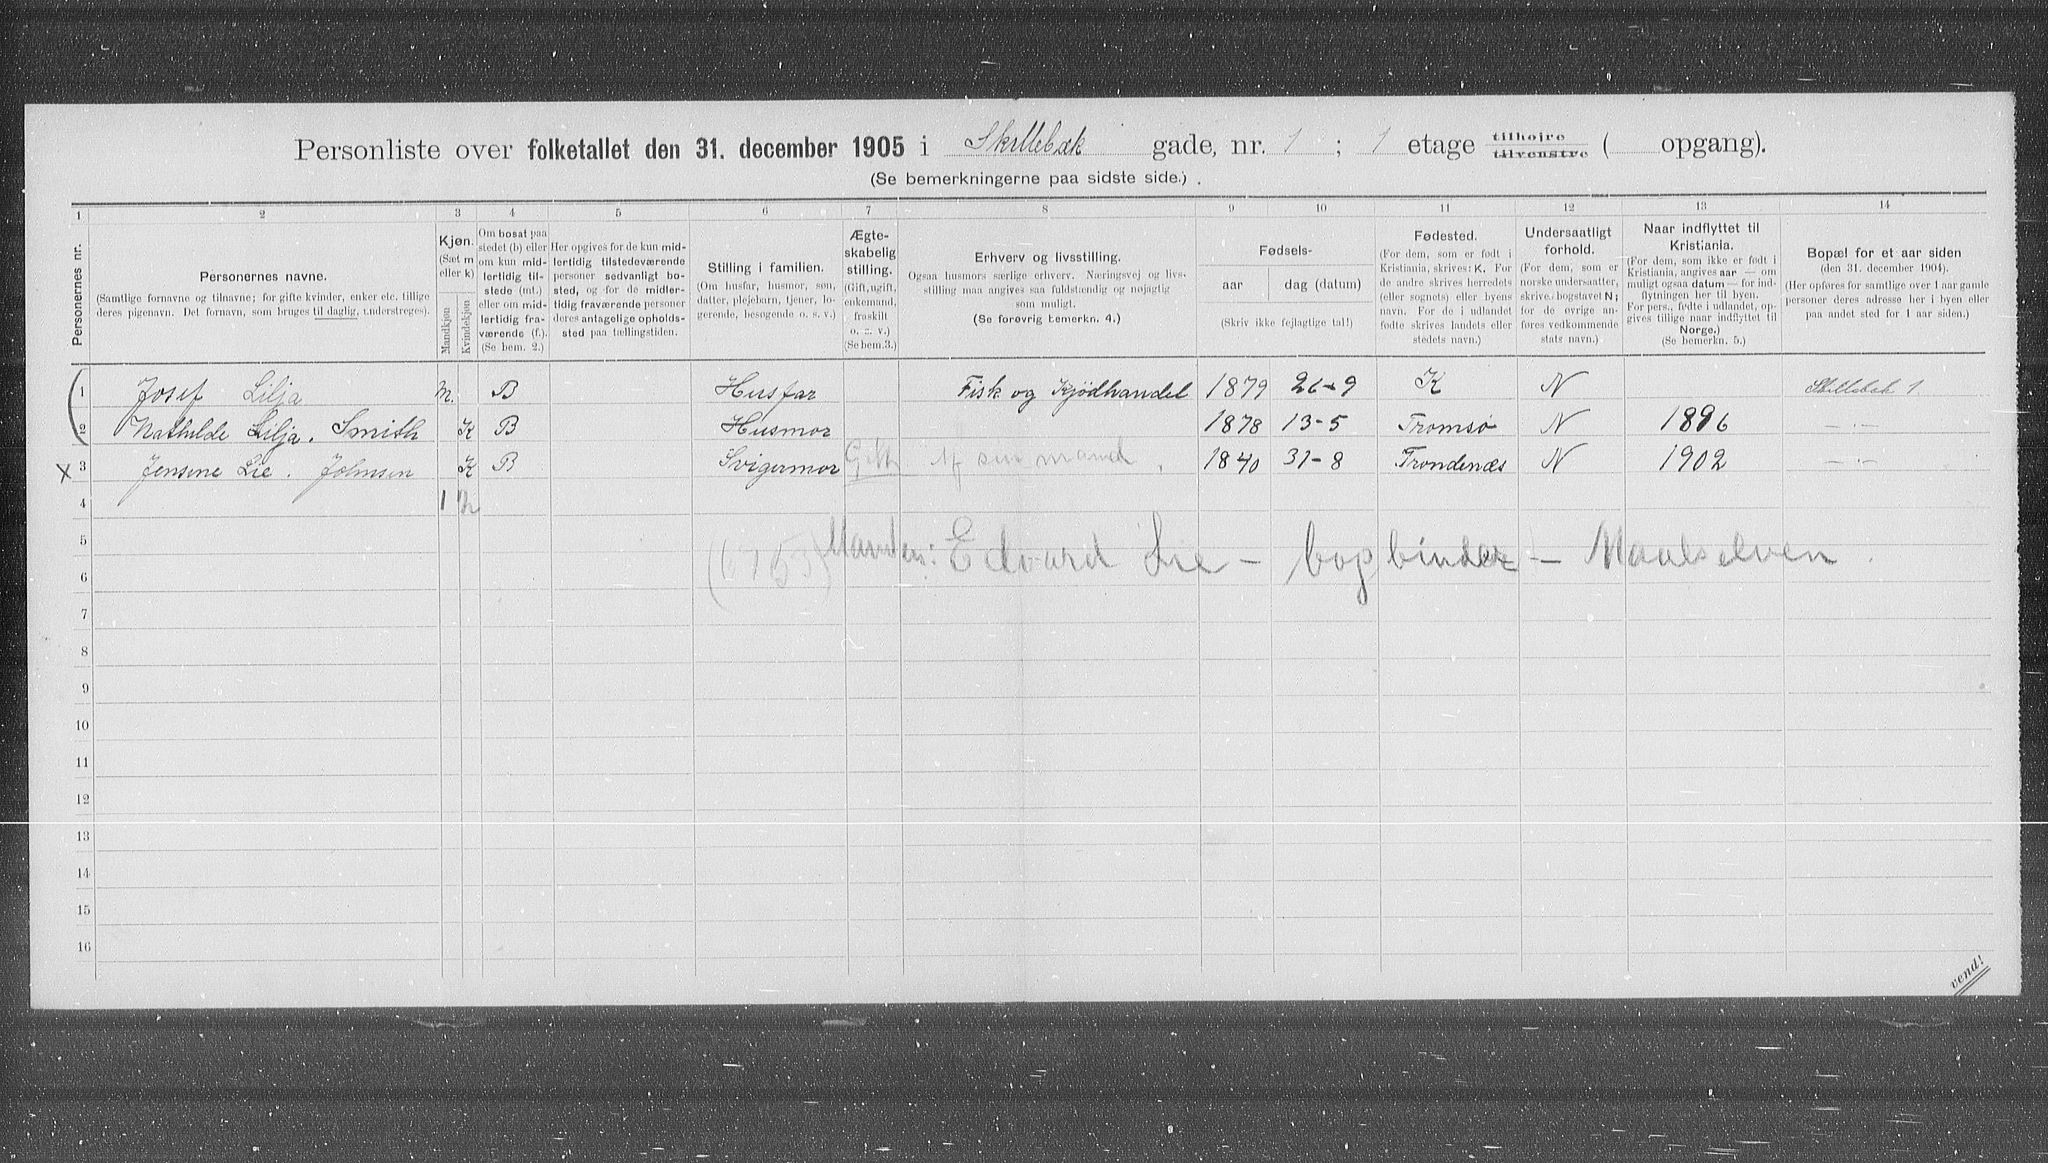 Personliste over folketallet den 31. december 1905 i Skillebæk gade, nr. 1 ; 1 etage tilhøjre tilvenstre ( opgang).
(Se bemerkningerne paa sidste side.)
1 2 3 4 5 6 7 8 9 10 11 12 13 14
Personernes nr.
Personernes navne.
(Samtlige fornavne og tilnavne; for gifte kvinder, enker etc. tillige
deres pigenavn. Det fornavn, som bruges til daglig, understreges).
Kjøn.
(Sæt m
eller k)
Mandkjøn
Kvindekjøn
Om bosat paa
stedet (b) eller
om kun mid-
lertidig til-
stede (mt.)
eller om mid-
lertidig fra-
værende (f.).
(Se bem. 2.)
Her opgives for de kun mid-
lertidig tilstedeværende
personer sedvanligt bo-
sted, og for de midler-
tidig fraværende personer
deres antagelige opholds-
sted paa tællingstiden.
Stilling i familien.
(Om husfar, husmor, søn,
datter, plejebarn, tjener, lo-
gerende, besøgende o. s. v.)
Ægte-
skabelig
stilling.
(Gift, ugift,
enkemand,
fraskilt
o. s. v.)
(Se bem.3.)
Erhverv og livsstilling.
Ogsaa husmors særlige erhverv. Næringsvej og livs-
stilling maa angives saa fuldstændig og nøjagtig
som muligt.
(Se forøvrig bemerkn. 4.)
Fødsels-
aar dag (datum)
(Skriv ikke fejlagtige tal!)
Fødested.
(For dem, som er født i
Kristiania, skrives: K. For
de andre skrives herredets
(eller sognets) eller byens
navn. For de i udlandet
fødte skrives landets eller
stedets navn.)
Undersaatligt
forhold.
(For dem, som er
norske undersaatter,
skrives bogstavet N;
for de øvrige an-
føres vedkommende
stats navn.)
Naar indflyttet til
Kristiania.
(For dem, som ikke er født i
Kristiania, angives aar — om
muligt ogsaa datum — for ind-
flytningen her til byen.
For pers., fødte i udlandet, op-
gives tillige naar indflyttet til
Norge.)
(Se bemerkn. 5.)
Bopæl for et aar siden
(den 31. december 1904).
(Her opføres for samtlige over 1 aar gamle
personer deres adresse her i byen eller
paa andet sted for 1 aar siden.)
1 Josef Lilja m. B Husfar Fisk og Kjødhandel 1879 26-9 K N Skillebæk 1.
2 Mathilde Lilja. Smith K B Husmor 1878 13-5 Tromsø N 1896 —·—
x 3 Jensine Lie. Johnsen K B Svigermor Gift Af sin mand. 1840 31-8 Trondenæs N 1902 —·—
4 1 2
5
Manden: Edvard Lie — bogbinder — Maalselven.
6
7
8
9
10
11
12
13
14
15
16
vend!